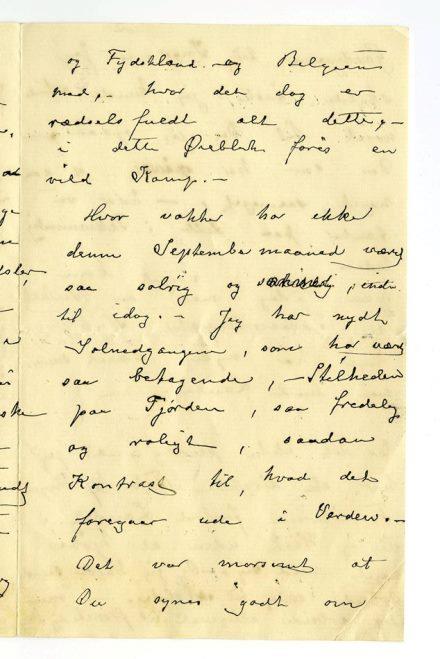 og Tydskland og Belgien
med, - hvor det dog er
rædselsfuldt alt dette, -
i dette Øieblik føres en
vild Kamp. -
Hvor vakker har ikke
denne September maaned været
saa solrig og, inde
til idag. - Jeg har nydt
Solnedgangene, som har været
saa betagende, - Stilheden
paa Fjorden, saa fredelig
og roligt, saadan
Kontrast til, hvad det
foregaar ude i Verden. -
Det var morsomt at
Du synes godt om